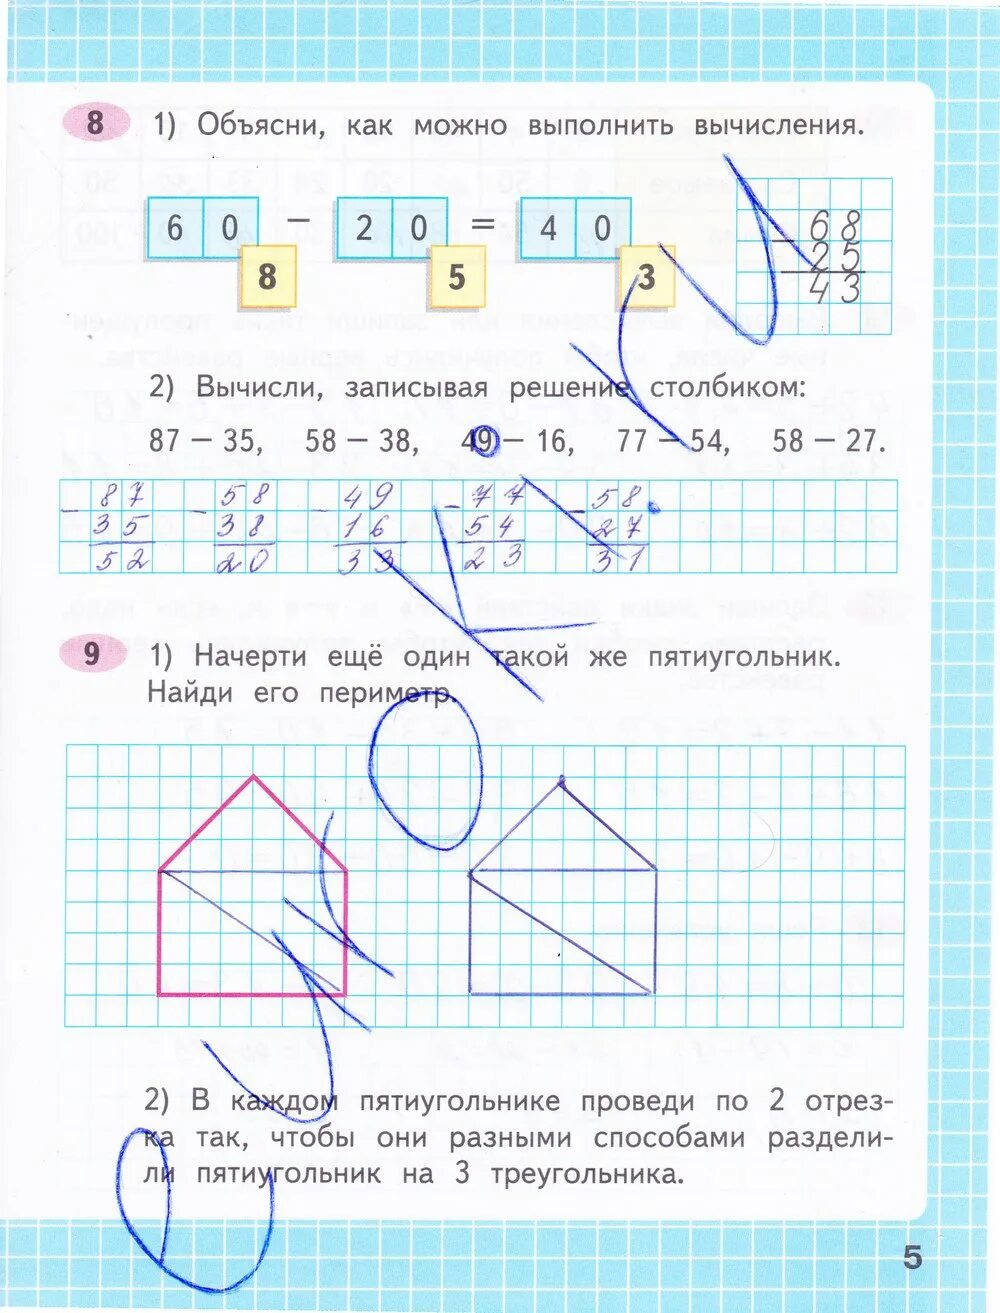 8 1) Объясни, как можно выполнить вычисления.
60 − 20 = 40
8 5 3
− 68
25
43
2) Вычисли, записывая решение столбиком:
87 − 35, 58 − 38, 49 − 16, 77 − 54, 58 − 27.
− 87 − 58 − 49 − 77 − 58
35 38 16 54 27
52 20 33 23 31
9 1) Начерти ещё один такой же пятиугольник.
Найди его периметр.
2) В каждом пятиугольнике проведи по 2 отрез-
ка так, чтобы они разными способами раздели-
ли пятиугольник на 3 треугольника.
5